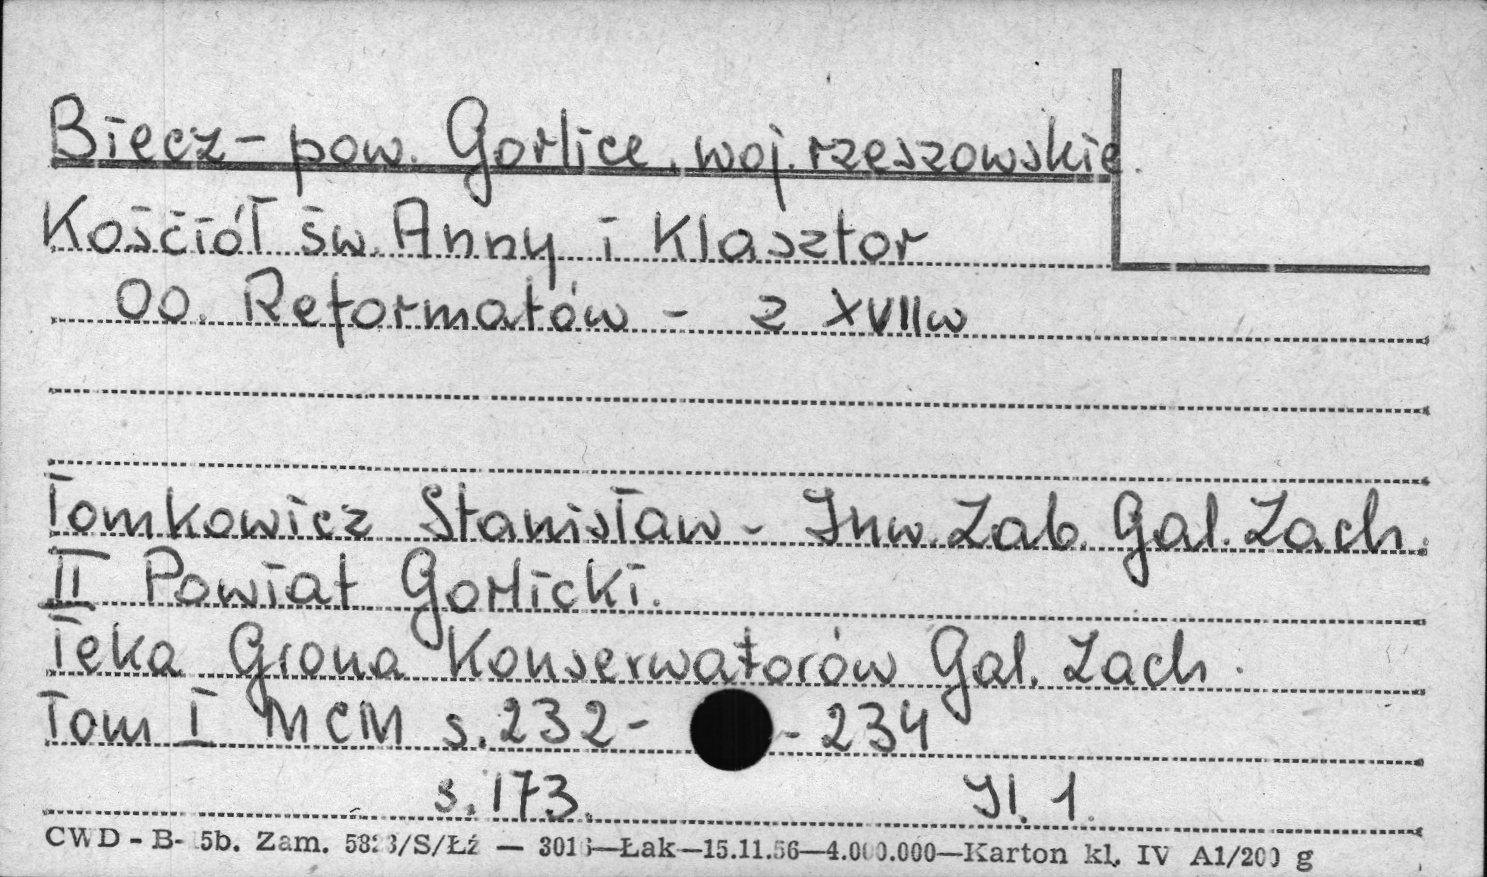 Biecz - pow. Gorlice, woj. rzeszowskie.
Kościół św. Anny i Klasztor
OO. Reformatów - z XVII w
Tomkowicz Stanisław - Inw. Zab. Gal. Zach.
II Powiat Gorlicki.
Teka Grona Konserwatorów Gal. Zach.
Tom I MCM s. 232 - - 234
s. 173. Il. 1
CWD - B- 5b. Zam. /S/Łź — —Łak—15.11.56—4.000.000—Karton kl. IV A1/200 g